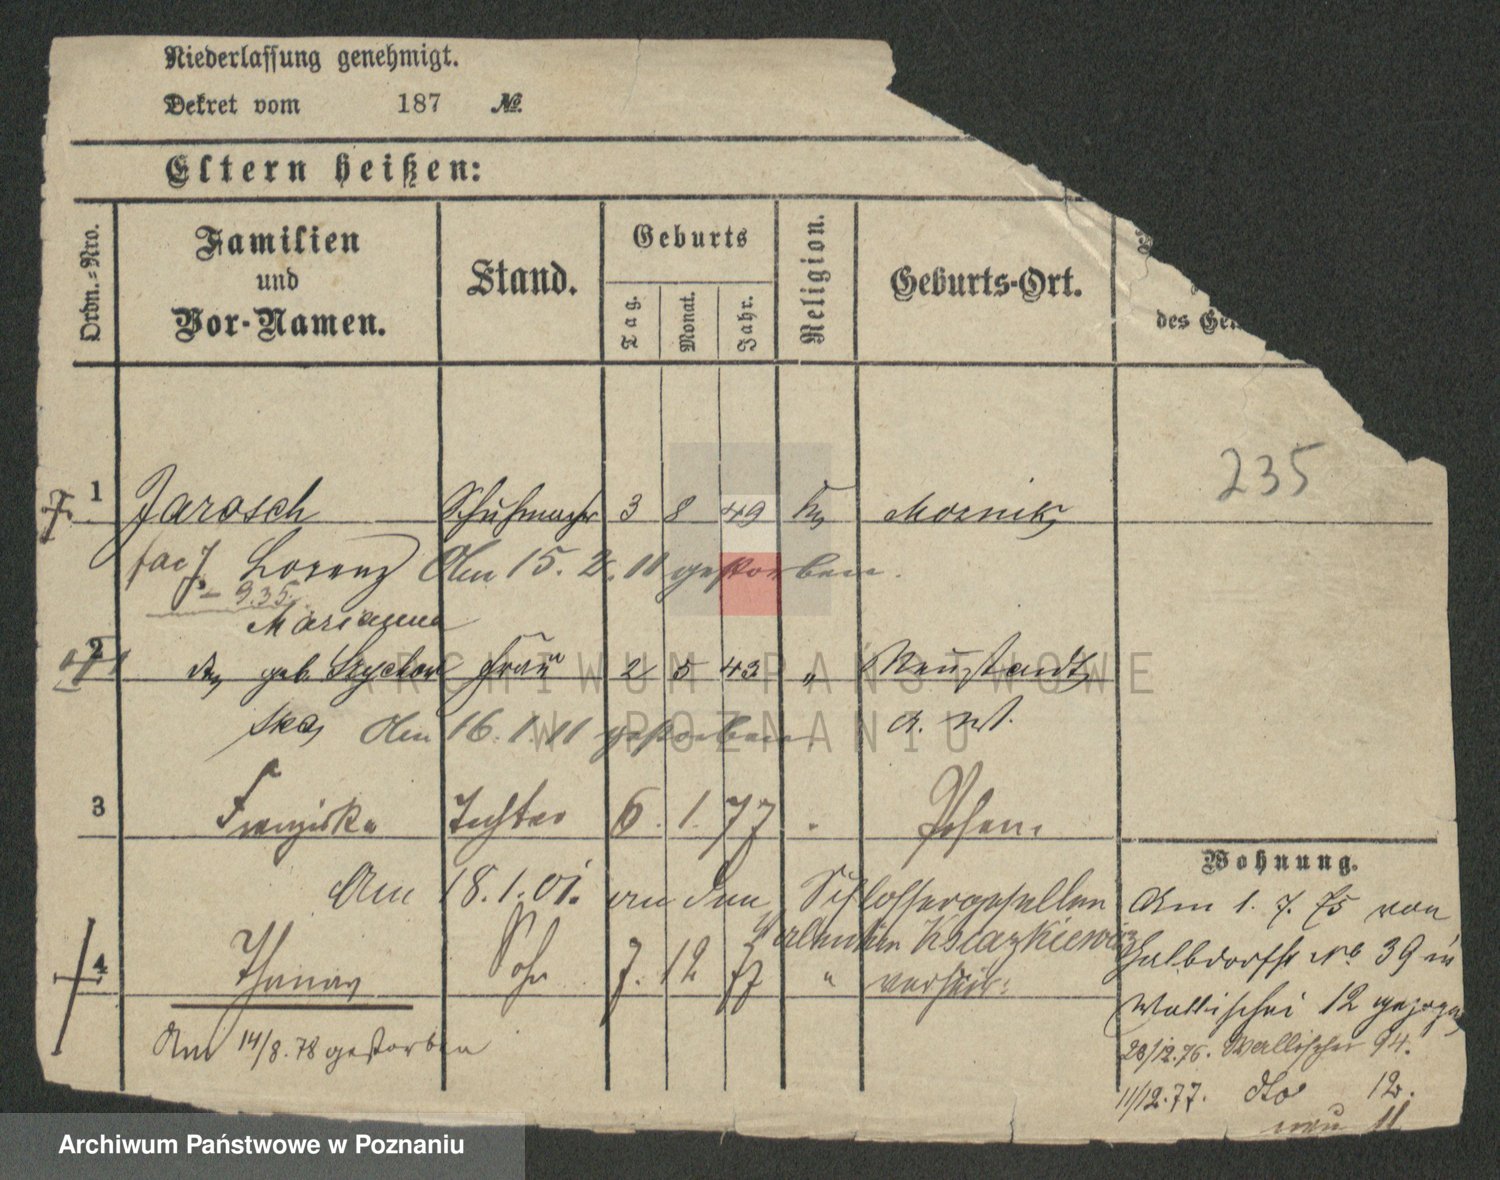 Niederlassung genehmigt.
Dekret vom 187 №
Eltern heißen:
Ordn.-Nro.
Familien
und
Vor-Namen.
Stand.
Geburts
Tag.
Monat.
Jahr.
Religion.
Geburts-Ort.
des Ge
235
1 Jarosch Schuhmacher 3 8 49 Moznik
Lorenz Am 15. 2. 11 gestorben.
9.35.
Marianna
2 geb. Szychow Frau 2 5 43 " Neustadt
ska Am 16. 1. 11 gestorben a. W.
3 Franziska Tochter 6. 1. 77 Posen.
Am 18. 1. 01. an den Schlossergesellen
Ksiazkiewicz
4 Thomas Sohn 7. 12 77 "
Am 14/8. 78 gestorben
Wohnung.
Am 1. 7. 75 von
Halbdorfstr No 39 in
Wallischei 12 gezogen
28/12.76. Wallischei 94.
11/12.77. dto 12.
neu 11
ARCHIWUM PAŃSTWOWE
W POZNANIU
Archiwum Państwowe w Poznaniu